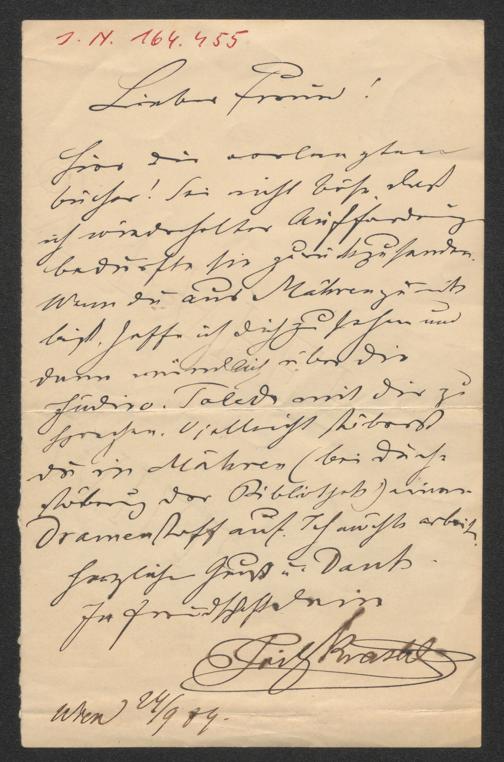 J. N. 164.455
Lieber Freund!
Hier die verlangten
Bücher! Sei nicht böse daß
ich wiederholter Aufforderung
bedurfte sie zurückzusenden.
Wenn du aus Mähren zurück
bist, hoffe ich dich zu sehen und
dann mündlich über die
Jüdin v. Toledo mit dir zu
sprechen. Vielleicht stöberst
du in Mähren (bei Durch-
stöberung der Bibliothek) einen
Dramenstoff auf. Ich möchte arbeiten.
Herzlichen Gruß u. Dank.
In Freundschaft dein
Fritz Krastel
Wien 24/9 84.